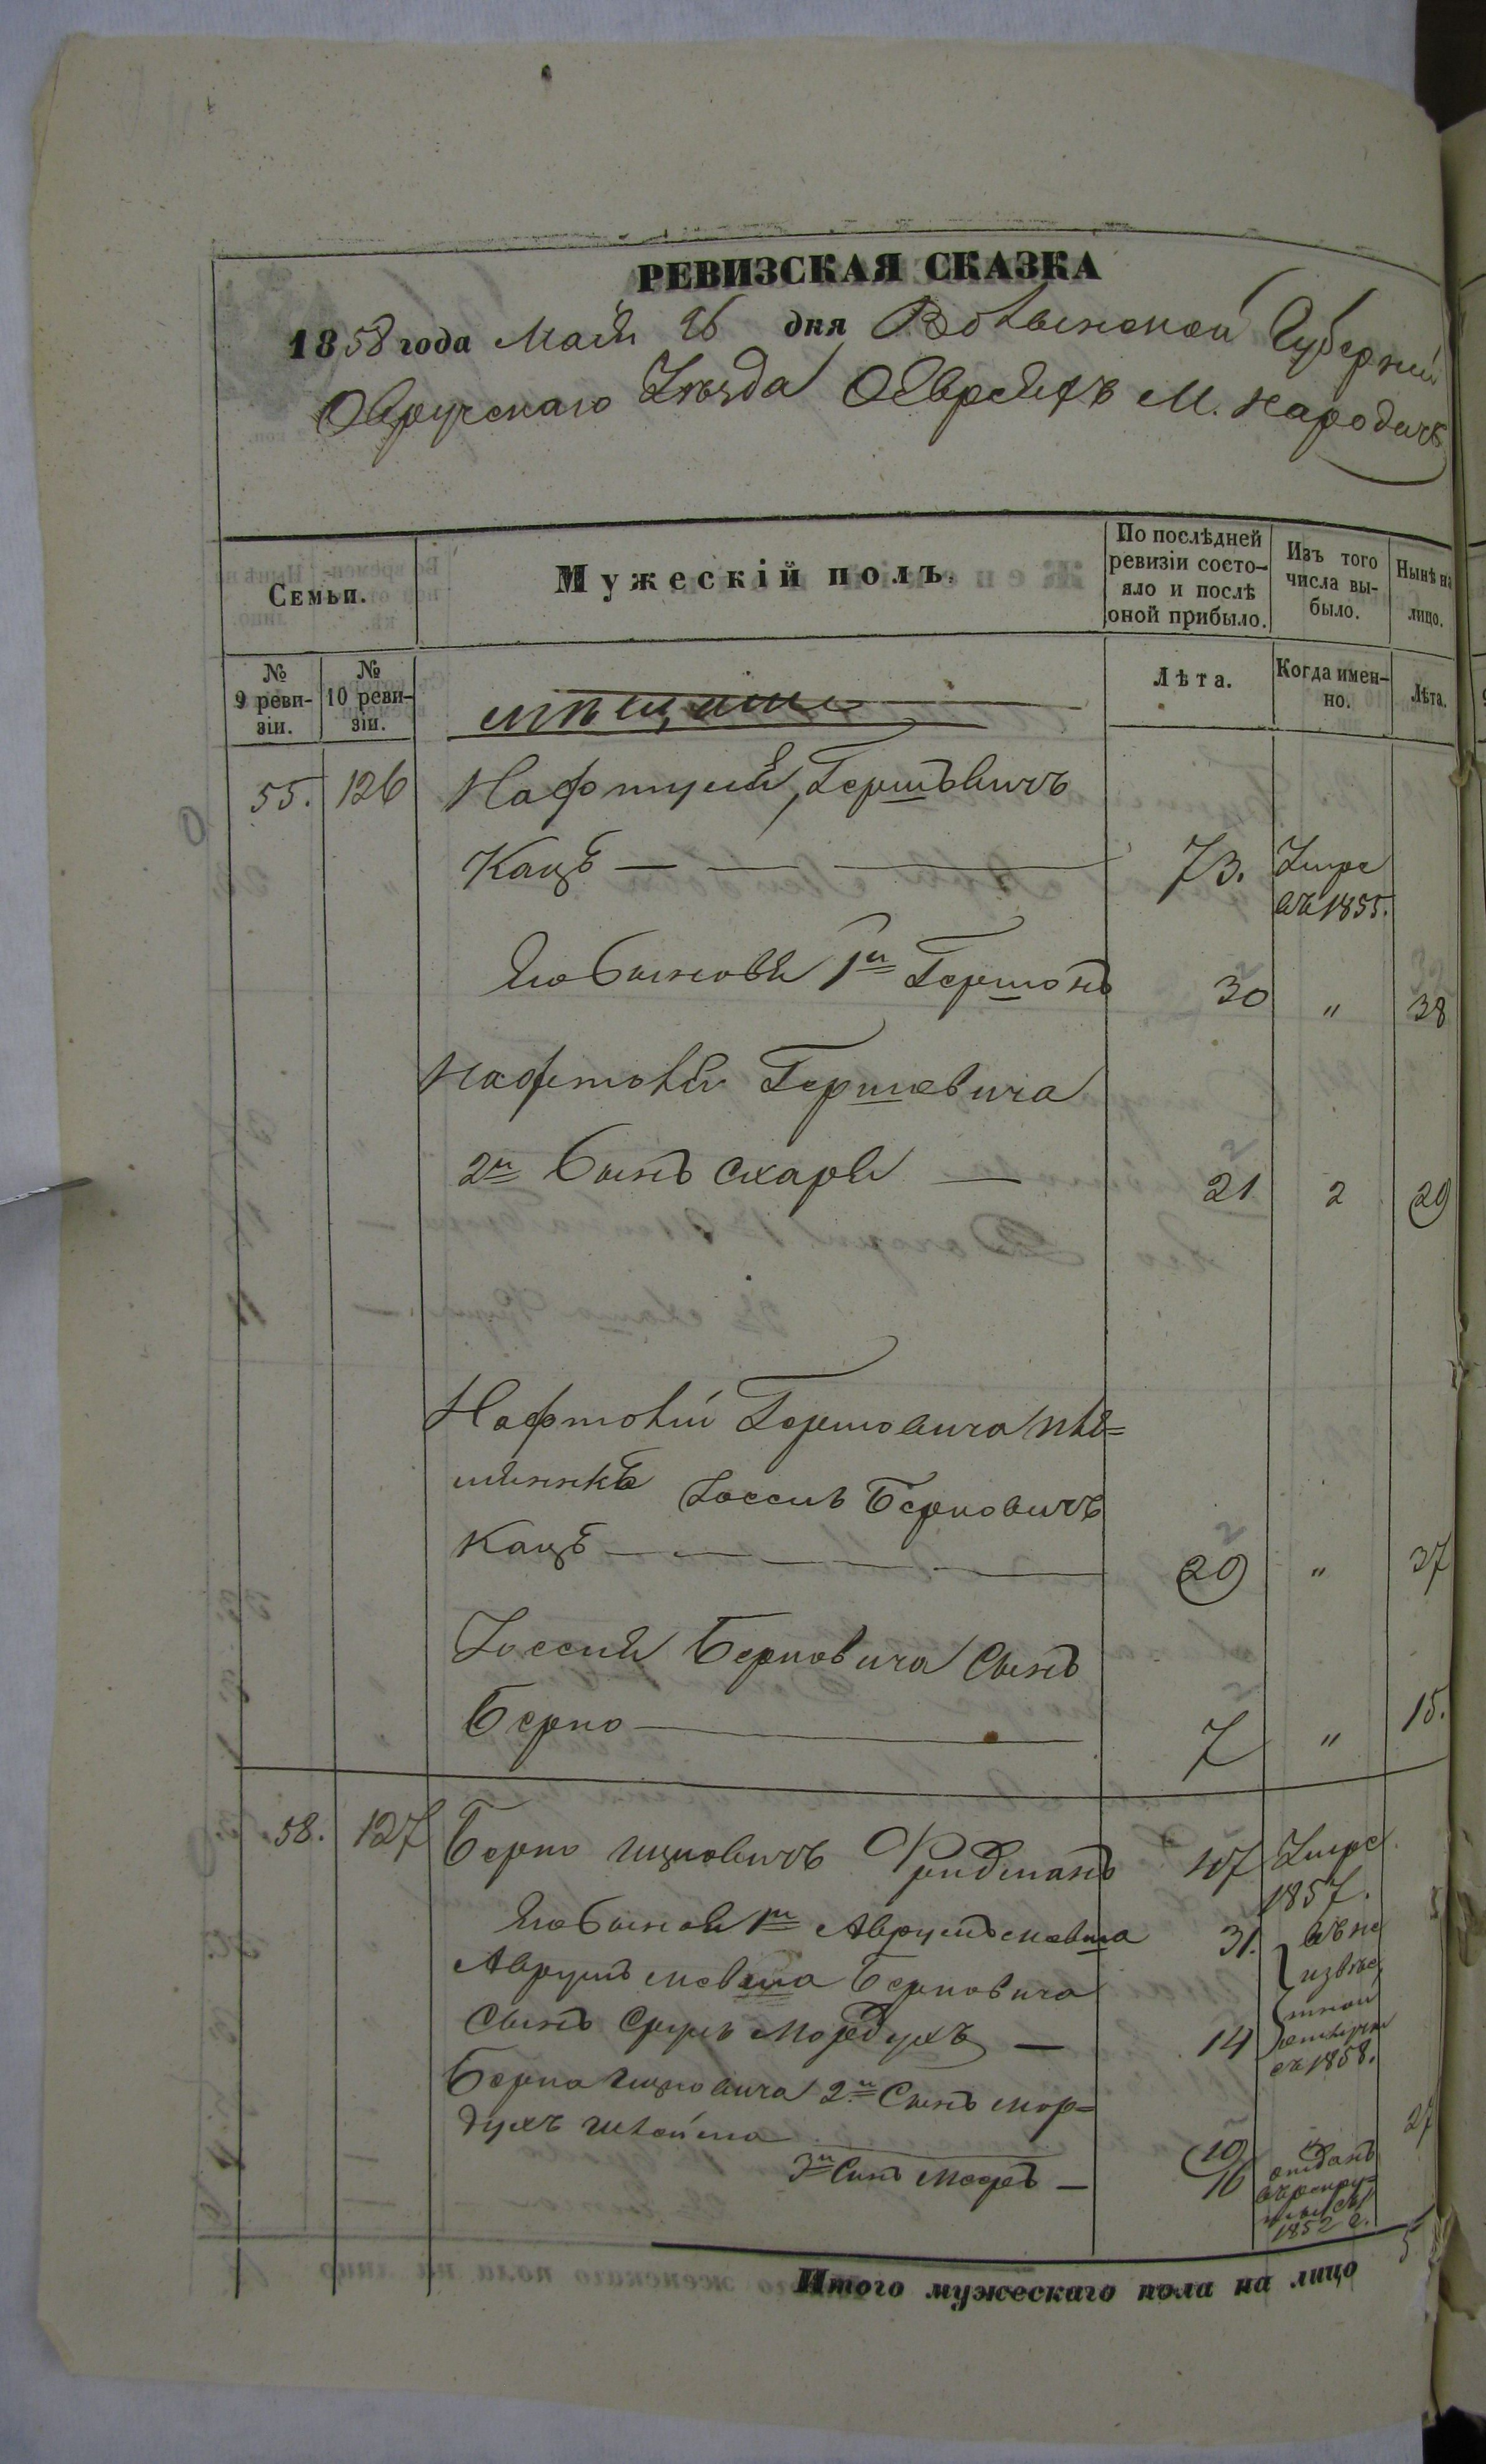 РЕВИЗСКАЯ СКАЗКА
1858 года Мая 26 дня Волынской Губерніи
Овручскаго Уѣзда О Евреяхъ М. Народичъ
Семьи.
Мужескій полъ.
По послѣдней ревизіи состо-
яло и послѣ
оной прибыло.
Изъ того
числа вы-
было.
Нынѣ на
лицо.
№
9 реви-
зіи.
№
10 реви-
зіи.
мѣщане
Лѣта.
Когда имен-
но.
Лѣта.
55. 126 Нафтулій Гершковичъ
Кацъ 73. Умре
въ 1855.
Его Сыновья 1й Гершонъ 30 " 38
Нафтолія Гершковича
2й Сынъ Схарія 21 2 29
Нафтолія Гершковича пле=
мянникъ Іоссиъ Берковичъ
Кацъ 29 " 37
Іоссія Берковича Сынъ
Берко 7 " 15.
58. 127 Берко Ицковичъ Фридманъ 107 Умре
1857.
Его Сыновья 1й Аврумъ Мовша 31. въ не
извѣс
Аврумъ Мовша Берковича
Сынъ Сруль Мордухъ 14 тной
отлучк
съ 1858.
Берка Ицковича 2й Сынъ Мор=
духъ Шлойма 19 " 27
3й Сынъ 16 отданъ
въ рекру=
ты съ
1852 г.
Итого мужескаго пола на лицо 5